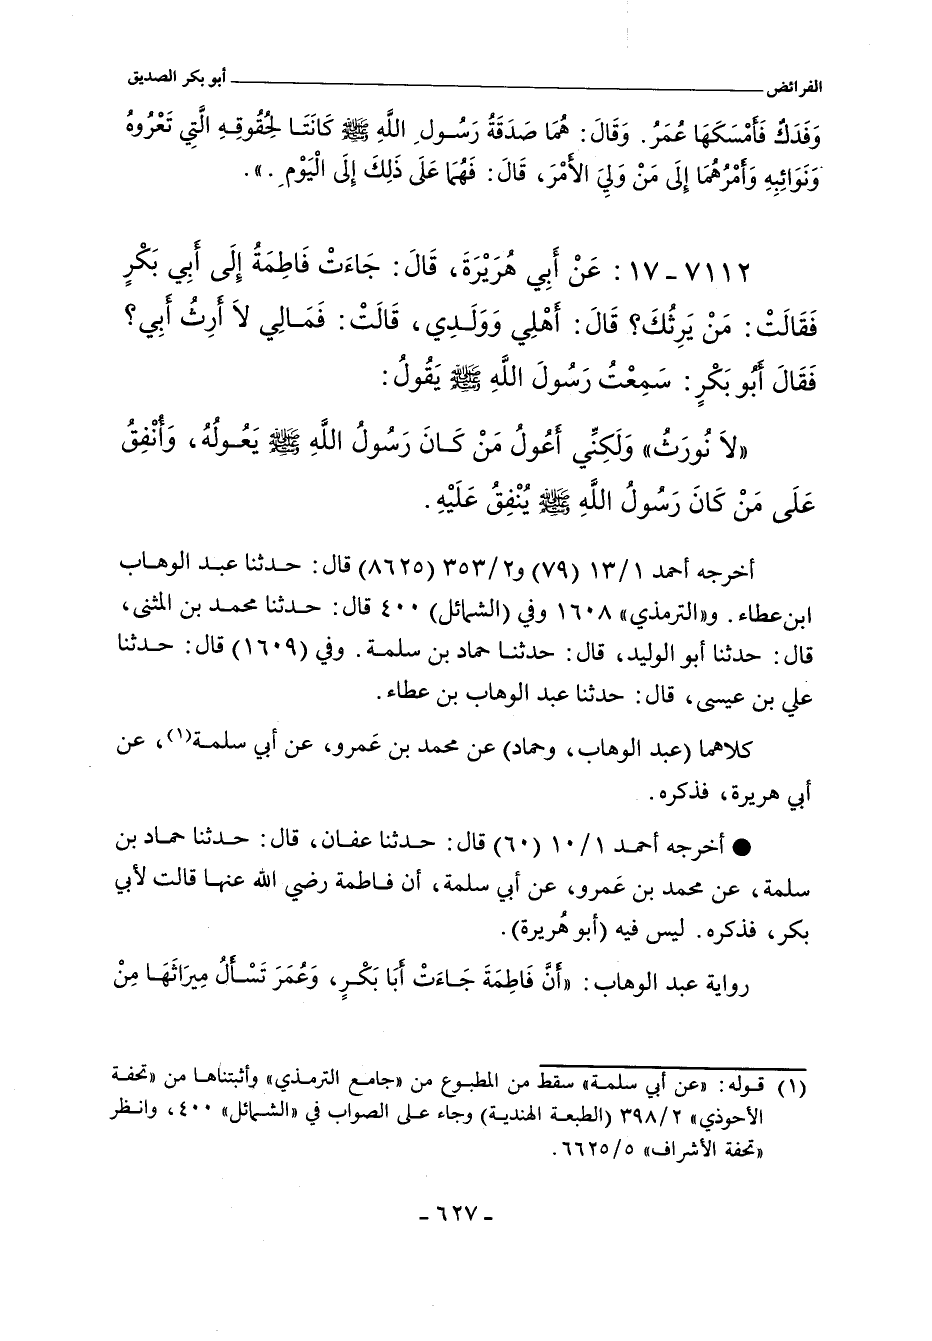 الفرائض ــــــــــ أبو بكر الصديق
وَفَدَكُ فَأَمْسَكَهَا عُمَرُ. وَقَالَ: هُمَا صَدَقَةُ رَسُولِ اللَّهِ ﷺ كَانَتَا لِحُقُوقِهِ الَّتِي تَعْرُوهُ
وَنَوَائِبِهِ وَأَمْرُهُمَا إِلَى مَنْ وَلِيَ الأَمْرَ، قَالَ: فَهُمَا عَلَى ذَلِكَ إِلَى الْيَوْمِ.».
٧١١٢ - ١٧: عَنْ أَبِي هُرَيْرَةَ، قَالَ: جَاءَتْ فَاطِمَةُ إِلَى أَبِي بَكْرٍ
فَقَالَتْ: مَنْ يَرِثُكَ؟ قَالَ: أَهْلِي وَوَلَدِي، قَالَتْ: فَمَالِي لاَ أَرِثُ أَبِي؟
فَقَالَ أَبُو بَكْرٍ: سَمِعْتُ رَسُولَ اللَّهِ ﷺ يَقُولُ:
«لاَ نُورَثُ» وَلَكِنِّي أَعُولُ مَنْ كَانَ رَسُولُ اللَّهِ ﷺ يَعُولُهُ، وَأُنْفِقُ
عَلَى مَنْ كَانَ رَسُولُ اللَّهِ ﷺ يُنْفِقُ عَلَيْهِ.
أخرجه أحمد ١/١٣ (٧٩) و٢/٣٥٣ (٨٦٢٥) قال: حدثنا عبد الوهاب
ابن عطاء. و«الترمذي» ١٦٠٨ وفي (الشمائل) ٤٠٠ قال: حدثنا محمد بن المثنى،
قال: حدثنا أبو الوليد، قال: حدثنا حماد بن سلمة. وفي (١٦٠٩) قال: حدثنا
علي بن عيسى، قال: حدثنا عبد الوهاب بن عطاء.
كلاهما (عبد الوهاب، وحماد) عن محمد بن عَمرو، عن أبي سلمة(١)، عن
أبي هريرة، فذكره.
● أخرجه أحمد ١/١٠ (٦٠) قال: حدثنا عفان، قال: حدثنا حماد بن
سلمة، عن محمد بن عَمرو، عن أبي سلمة، أن فاطمة رضي الله عنها قالت لأبي
بكر، فذكره. ليس فيه (أبو هُريرة).
رواية عبد الوهاب: «أَنَّ فَاطِمَةَ جَاءَتْ أَبَا بَكْرٍ، وَعُمَرَ تَسْأَلُ مِيرَاثَهَا مِنْ
(١) قوله: «عن أبي سلمة» سقط من المطبوع من «جامع الترمذي» وأثبتناها من «تحفة
الأحوذي» ٢/٣٩٨ (الطبعة الهندية) وجاء على الصواب في «الشمائل» ٤٠٠، وانظر
«تحفة الأشراف» ٥/٦٦٢٥.
- ٦٢٧ -